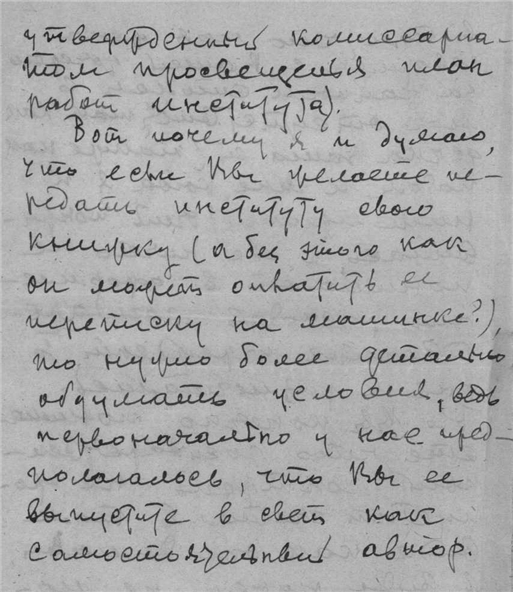 утвержденный комиссариа-
том просвещенья план
работ института).
Вот почему я и думаю,
что если Вы желаете пе-
редать институту свою
книжку (а без этого как
он может оплатить ее
переписку на машинке?),
то нужно более детально
обдумать условия, ведь
первоначально у нас пред-
полагалось, что Вы ее
выпустите в свет как
самостоятельный автор.